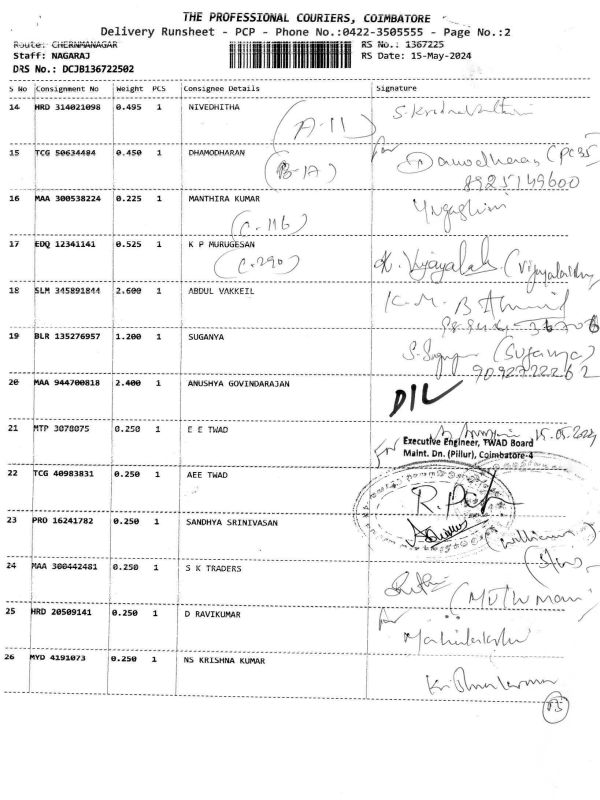 THE PROFESSIONAL COURIERS, COIMBATORE
Delivery Runsheet - PCP - Phone No.:0422-3505555 - Page No.:2
Route: CHERNMANAGAR
RS No.: 1367225
Staff: NAGARAJ
RS Date: 15-May-2024
DRS No.: DCJB136722502
S No Consignment No Weight PCS Consignee Details Signature
14 HRD 314021098 0.495 1 NIVEDHITHA
(A-11)
15 TCG 50634484 0.450 1 DHAMODHARAN for
(B-1A)
8925149600
16 MAA 300538224 0.225 1 MANTHIRA KUMAR
(C-116)
17 EDQ 12341141 0.525 1 K P MURUGESAN
(C-290) K. Vijayalak (Vijayalakshmy
18 SLM 345891844 2.600 1 ABDUL VAKKEIL K. M. B
19 BLR 135276957 1.200 1 SUGANYA (Suganya)
9092722262
20 MAA 944700818 2.400 1 ANUSHYA GOVINDARAJAN D/L
21 MTP 3078075 0.250 1 E E TWAD 15.05.2024
For Executive Engineer, TWAD Board
Maint. Dn. (Pillur), Coimbatore-4
22 TCG 40983831 0.250 1 AEE TWAD
23 PRO 16241782 0.250 1 SANDHYA SRINIVASAN
(william)
24 MAA 300442481 0.250 1 S K TRADERS
(Muthumani)
25 HRD 20509141 0.250 1 D RAVIKUMAR for
26 MYD 4191073 0.250 1 NS KRISHNA KUMAR Krishnakumar